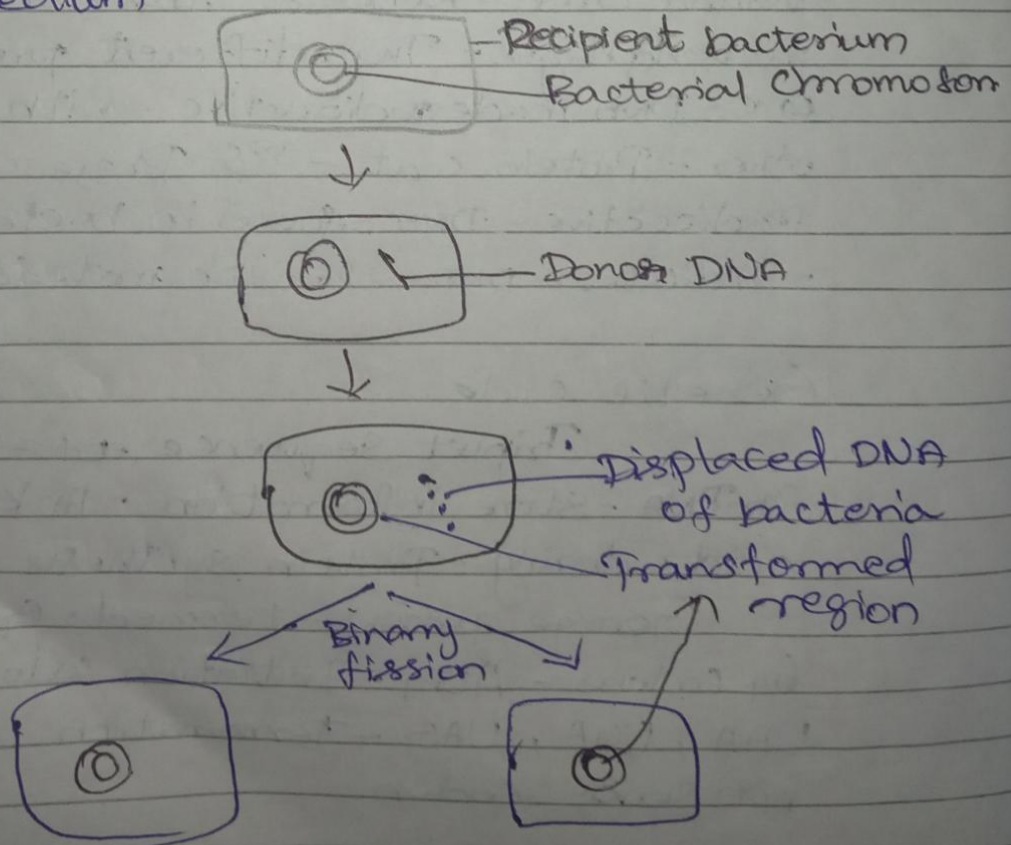 Recipient bacterium
Bacterial Chromoson
Donor DNA
Displaced DNA
of bacteria
Transformed
region
Binary
fission